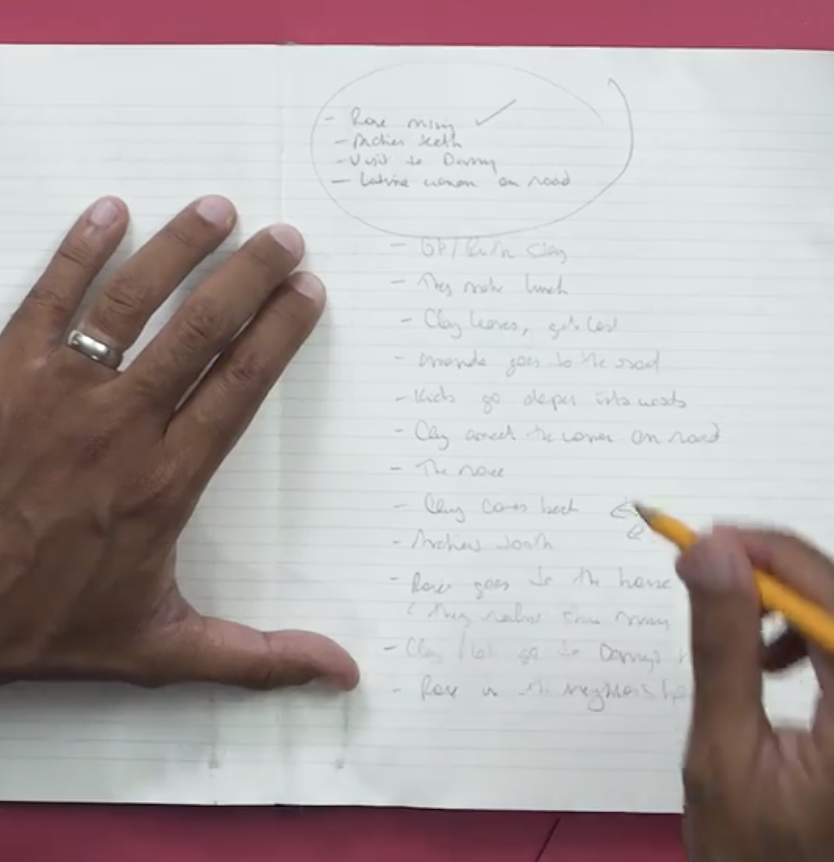 - Rose missing ✓
- Archies teeth
- Visit to Danny
- Latina woman on road
- GH/Ruth Clay
- They make lunch
- Clay leaves, gets lost
- Amanda goes to the road
- Kids go deeper into woods
- Clay the woman on road
- The noise
- Clay comes back
- Archies tooth
- Rose goes to the house
They realize shes missing
- Clay / go to Danny's
- Rose in the neighbors